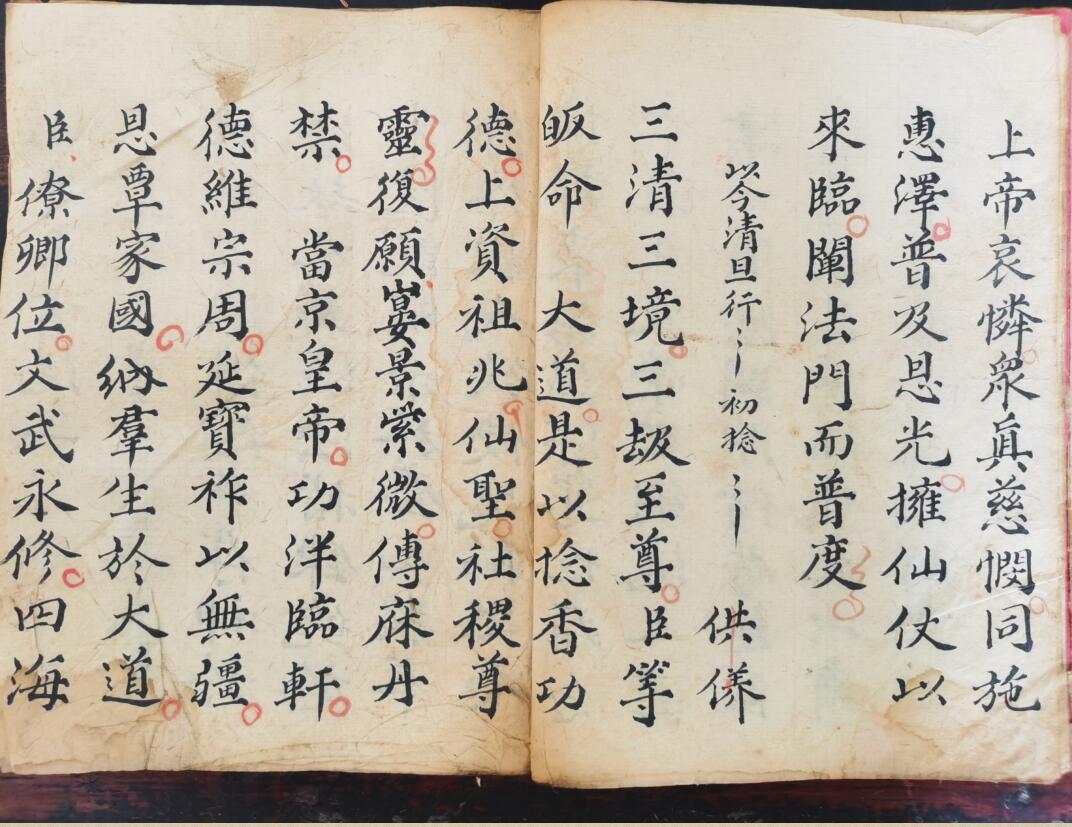 上帝哀憐衆眞慈憫同施
惠澤普及恩光擁仙仗以
來臨闡法門而普度
以今清旦行〻初捻〻 供養
三清三境三刼至尊臣等
皈命 大道是以捻香功
德上資祖兆仙聖社稷尊
靈復願宴景紫微傅庥丹
禁 當京皇帝功洋臨軒
德維宗周延寶祚以無疆
恩覃家國納羣生於大道
臣僚卿位文武永修四海